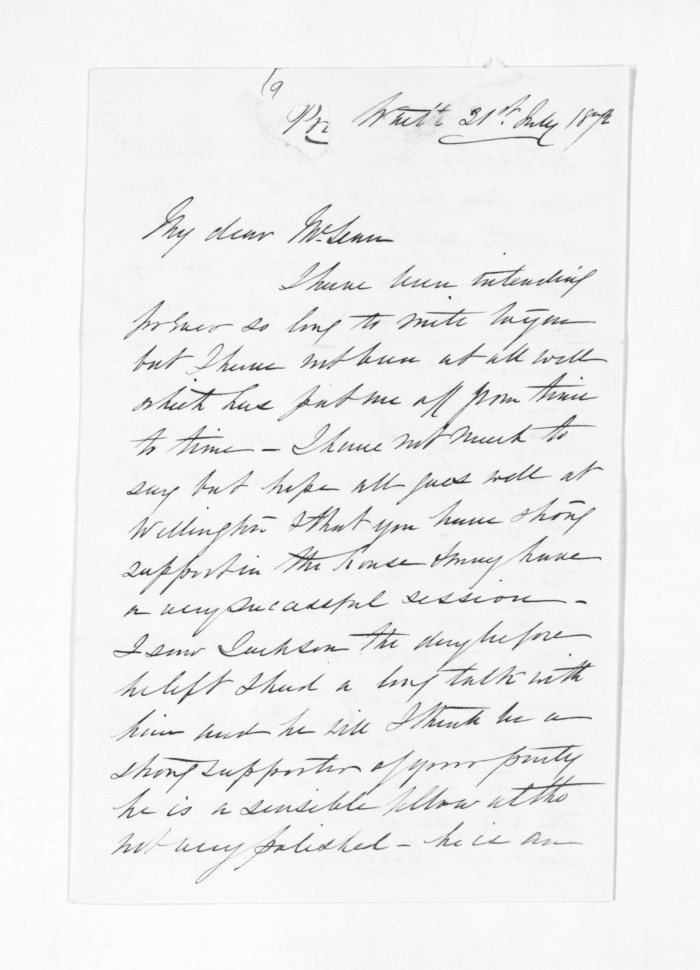 19
Pri Wait'r 21st July 1872
My dear McLean
I have been intending
for ever so long to write to you
but I have not been at all well
which has put me off from time
to time - I have not much to
say but hope all goes well at
Wellington & that you have strong
support in the house & may have
a very successful session -
I saw Jackson the day before
he left & had a long talk with
him and he will I think be a
strong supporter of your party
he is a sensible fellow altho
not very polished - he is an